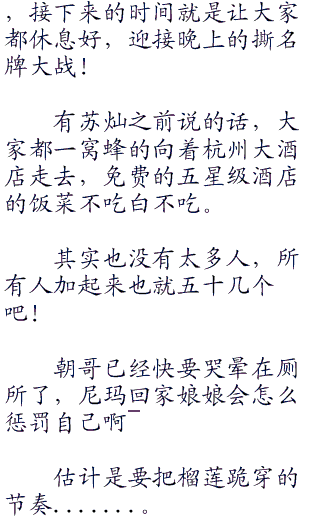 ，接下来的时间就是让大家
都休息好，迎接晚上的撕名
牌大战！
有苏灿之前说的话，大
家都一窝蜂的向着杭州大酒
店走去，免费的五星级酒店
的饭菜不吃白不吃。
其实也没有太多人，所
有人加起来也就五十几个
吧！
朝哥已经快要哭晕在厕
所了，尼玛回家娘娘会怎么
惩罚自己啊¯
估计是要把榴莲跪穿的
节奏.......。